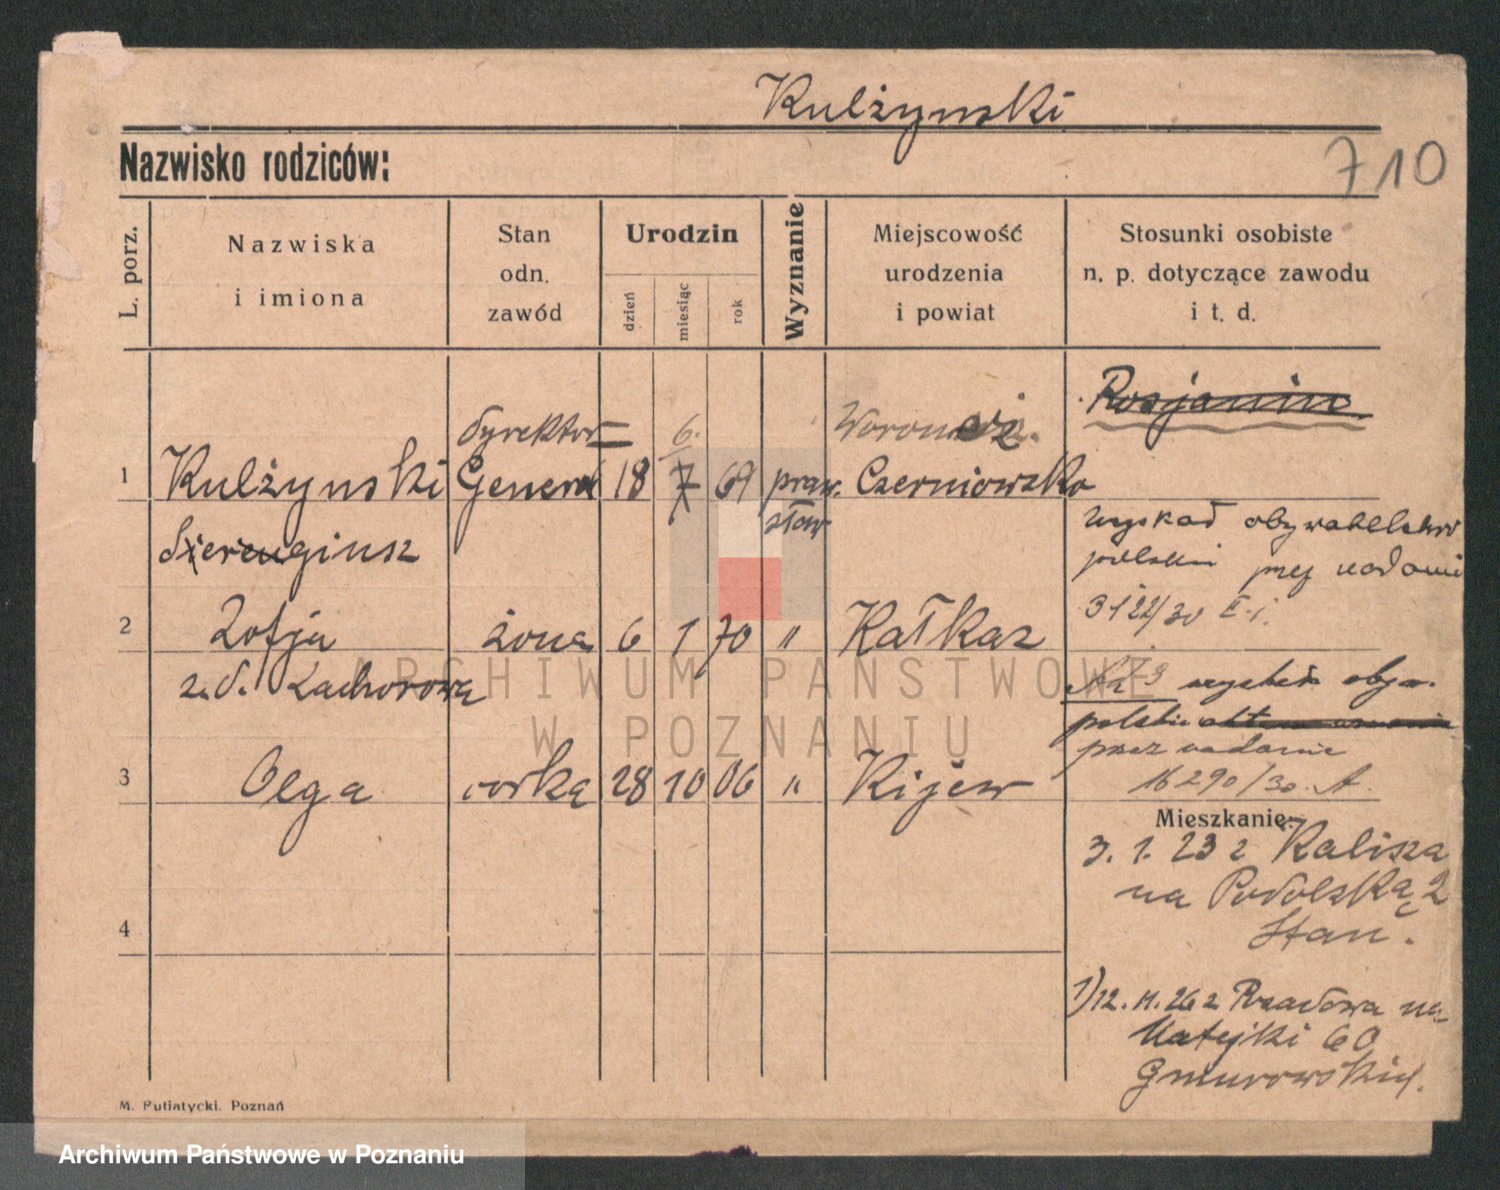 Kulżynski
710
Nazwisko rodziców:
L. porz.
Nazwiska
i imiona
Stan
odn.
zawód
Urodzin
dzień
miesiąc
rok
Wyznanie
Miejscowość
urodzenia
i powiat
Stosunki osobiste
n. p. dotyczące zawodu
i t. d.
Rosjanin
dyrektor
6.
1 Kulżynski General 18 7 69 praw. Czerniowsko
sław
giusz
uzyskał obywatelstwo
polskie przez nadanie
3122/30
2 Zofja żona 6 1 70 " Kałkaz
z. d. Lachorowa
obyw.
polskie
przez nadanie
16290/30. A.
3 Olga córka 28 10 06 " Kijew
Mieszkanie:
3. 1. 23 z Kalisza
na Podolską 2
Stan.
4
1) 12. 11. 26 z Rzadowa na
Matejki 60
Gmurowskich.
M. Putiatycki. Poznań
ARCHIWUM PAŃSTWOWE
W POZNANIU
Archiwum Państwowe w Poznaniu